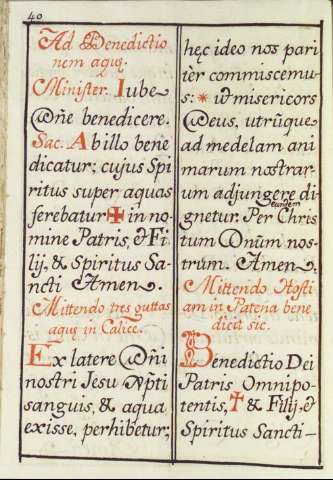 40
Ad Benedictio
nem aquȩ.
Minister. Iube
Dñe benedicere.
Sac. Ab illo bene
dicatur; cujus Spi
ritus super aquas
ferebatur ✠ in no-
mine Patris, & Fi
lij, & Spiritus Sa-
ncti Amen.
Mittendo tres guttas
aquȩ in Calice.
Ex latere Dñi
nostri Jesu Xpti
sanguis, & aqua
exisse, perhibetur;
hȩc ideo nos pari
tèr commiscemu-
s: * ut misericors
Deus, utrũque
ad medelam ani
marum nostrar-
um adjungere di-
gnetur. Per eundem Chris
tum Dnũm nos-
trum. Amen.
Mittendo Hosti
am in Patena bene
dicit sic.
Benedictio Dei
Patris Omnipo-
tentis, ✝ & Filij, &
Spiritus Sancti-